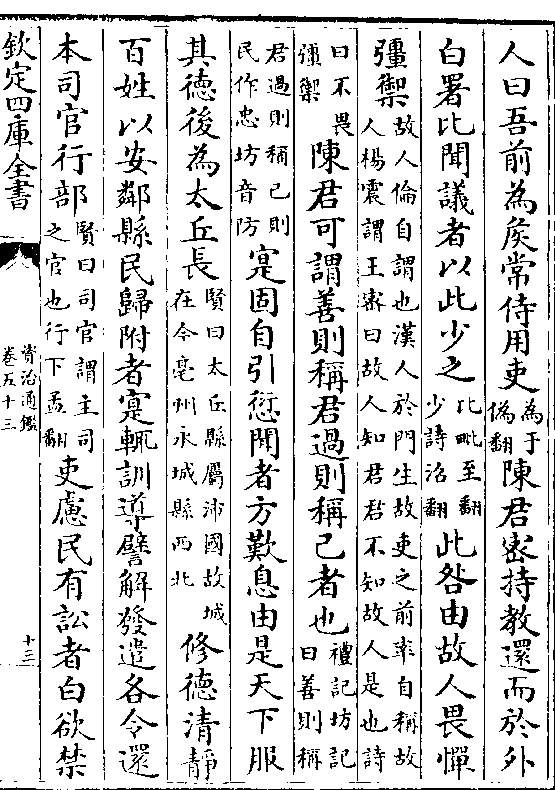 人曰吾前為侯常侍用吏為于偽翻陳君密持教還而於外
白署比聞議者以此少之比毗至翻少詩沼翻此咎由故人畏憚
彊禦故人倫自謂也漢人於門生故吏之前率自稱故人楊震謂王密曰故人知君君不知故人是也詩
曰不畏彊禦陳君可謂善則稱君過則稱己者也禮記坊記曰善則稱
君過則稱己則民作忠坊音防寔固自引愆聞者方歎息由是天下服
其德後為太丘長賢曰太丘縣屬沛國故城在今亳州永城縣西北修德清靜
百姓以安鄰縣民歸附者寔輒訓導譬解發遣各令還
本司官行部賢曰司官謂主司之官也行下孟翻吏慮民有訟者白欲禁
欽定四庫全書
資治通鑑
卷五十三
十三